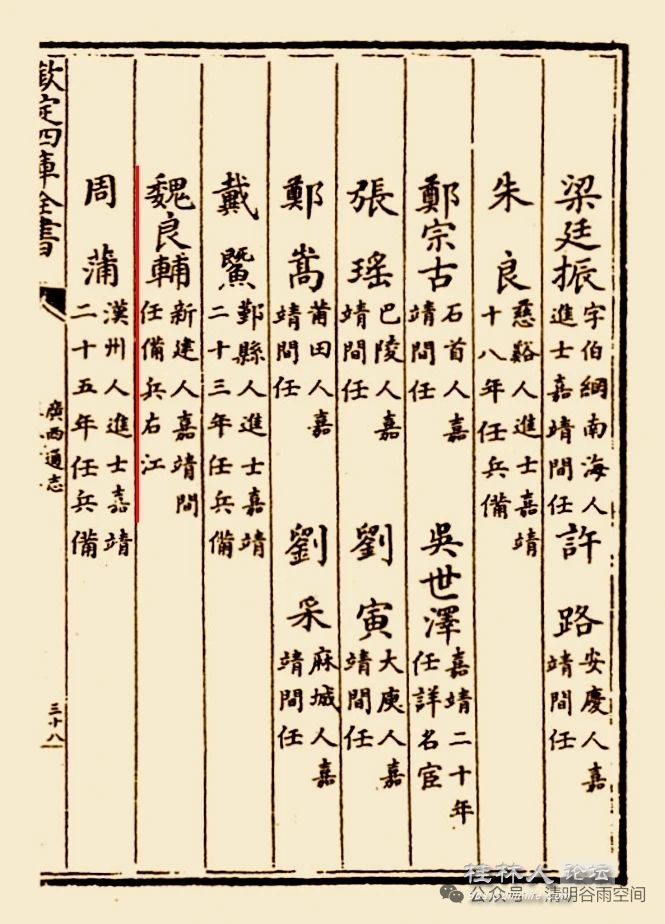 梁廷振 字伯綱南海人進士嘉靖間任 許路 安慶人嘉靖間任
朱良 慈谿人進士嘉靖十八年任兵備
鄭宗古 石首人嘉靖間任 吳世澤 嘉靖二十年任詳名宦
張瑤 巴陵人嘉靖間任 劉寅 大庾人嘉靖間任
鄭嵩 莆田人嘉靖間任 劉采 麻城人嘉靖間任
戴鱀 鄞縣人進士嘉靖二十三年任兵備
魏良輔 新建人嘉靖間任備兵右江
周蒲 漢州人進士嘉靖二十五年任兵備
欽定四庫全書 廣西通志 三十八
桂林人论坛
公众号 清明谷雨空间